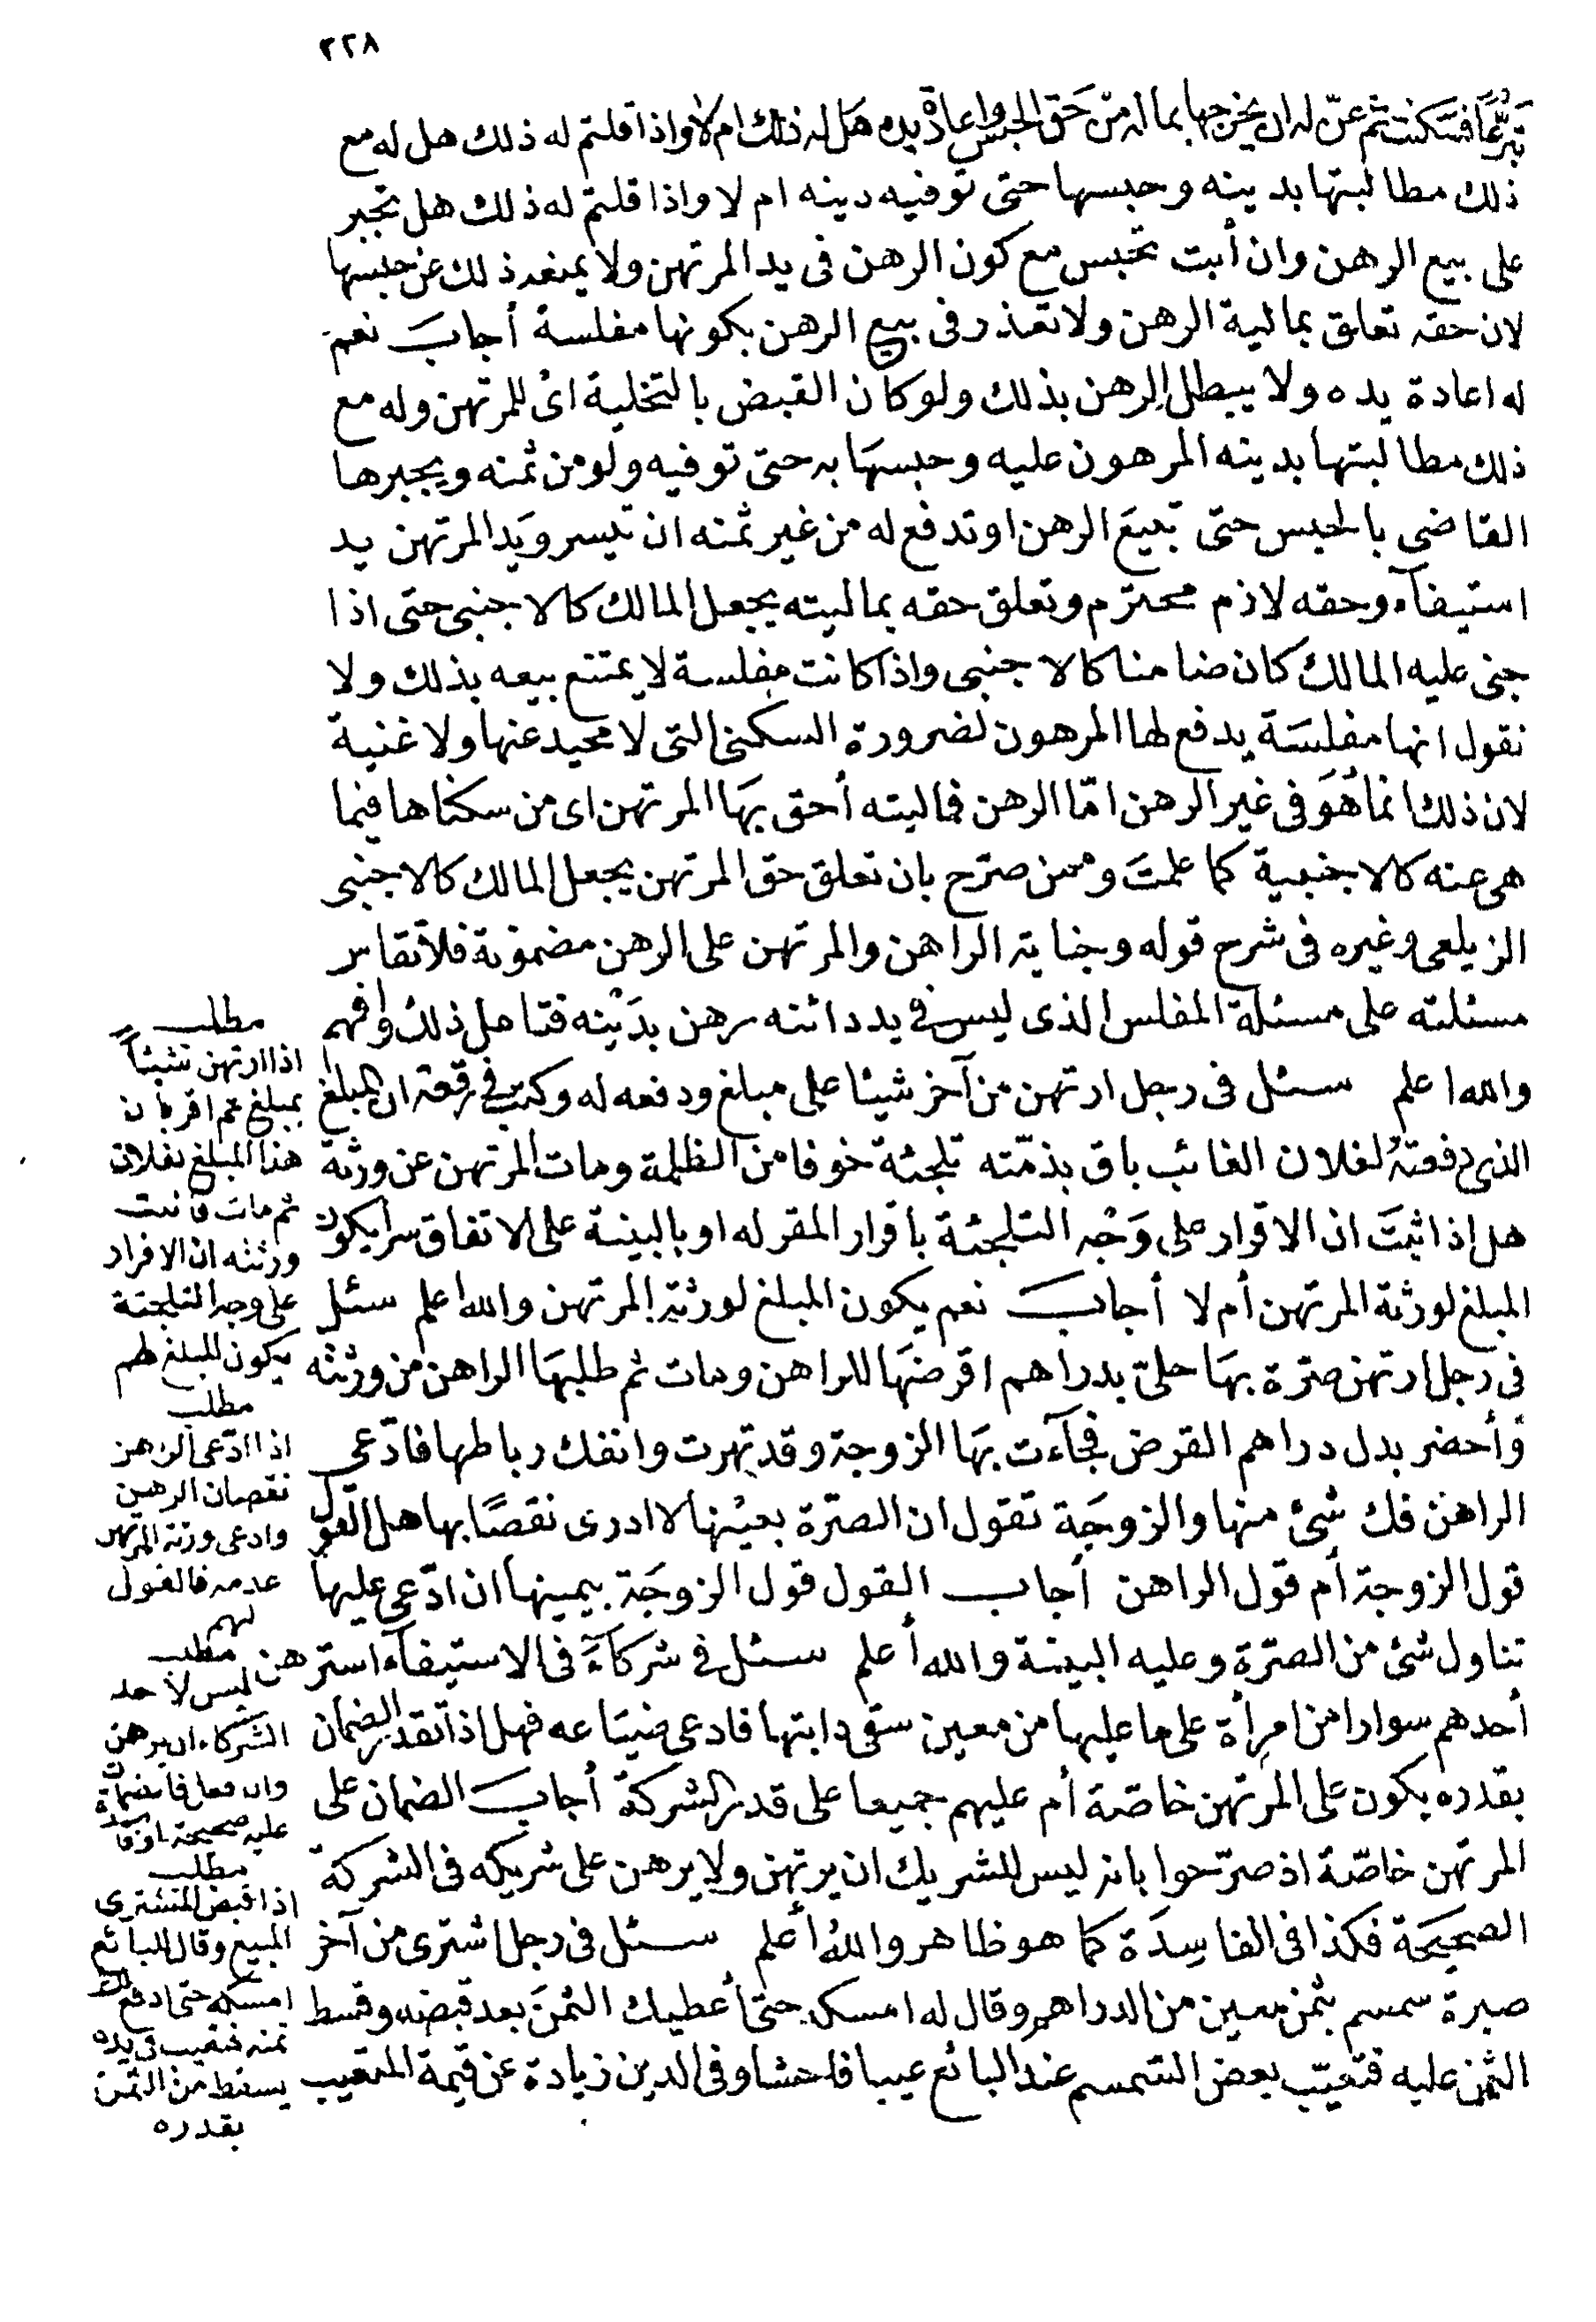 ٣٢٨
تبرّعًا فسكنت ثم عنّ له ان يخرجها بماله من حَق الحبس واعادة يده هَل له ذلك ام لا واذا قلتم له ذلك هل له مع
ذلك مطالبتها بدينه وحبسها حتى توفيه دينه ام لا واذا قلتم له ذلك هل تجبر
على بيع الرهن وان أبت تحبس مع كون الرهن فى يد المرتهن ولا يمنعه ذلك عن حبسها
لان حقه تعلق بمالية الرهن ولا تعذر فى بيع الرهن بكونها مفلسة أجابَ نعم
له اعادة يده ولا يبطل الرهن بذلك ولو كان القبض بالتخلية اى للمرتهن وله مع
ذلك مطالبتها بدينه المرهون عليه وحبسهَا به حتى توفيه ولو من ثمنه ويجبرها
القاضى بالحبس حتى تبيعَ الرهن او تدفع له من غير ثمنه ان تيسر ويَد المرتهن يد
استيفآء وحقه لازم محترم وتعلق حقه بماليته يجعل المالك كالاجنبى حتى اذا
جنى عليه المالك كان ضامنا كالاجنبى واذا كانت مفلسة لا يمتنع بيعه بذلك ولا
نقول انها مفلسَة يدفع لها المرهون لضرورة السكنى التى لا محيد عنها ولا غنية
لان ذلك انما هُوَ فى غير الرهن امّا الرهن فماليته أحق بهَا المرتهن اى من سكناها فيما
هى عنه كالاجنبية كما علمتَ وممن صرّح بان تعلق حق المرتهن يجعل المالك كالاجنبى
الزيلعى وغيره فى شرح قوله وجناية الراهن والمرتهن على الرهن مضمونة فلا تقاس
مسئلته على مسئلة المفلس الذى ليس فى يد دائنه رهن بدَيْنه فتامل ذلك وافهم
والله اعلم سئل فى رجل ارتهن من آخر شيئا على مبلغ ودفعه له وكتب فى رقعة ان المبلغ
الذى دفعتهُ لفلان الغائب باق بذمّته تلجئة خوفا من الظلمة ومات المرتهن عن ورثة
هل اذا ثبتَ ان الاقرار على وَجْه التلجئة باقرار المقر له او بالبينة على الاتفاق سرا يكون
المبلغ لورثة المرتهن أم لا أجابَ نعم يكون المبلغ لورثة المرتهن والله اعلم سئل
فى رجل ارتهن صرّة بهَا حلىّ بدراهم اقرضهَا للراهن ومات ثم طلبهَا الراهن من ورثته
وأحضر بدل دراهم القرض فجآءت بهَا الزوجة وقد تهرت وانفك رباطها فادّعى
الراهن فك شئ منها والزوجَة تقول ان الصرّة بعيْنها لا ادرى نقصًا بها هل القول
قول الزوجة أم قول الراهن أجاب القول قول الزوجَة بيمينها ان ادّعى عليها
تناول شئ من الصرّة وعليه البينة والله أعلم سئل فى شركآءَ فى الاستيفآء استرهن
أحدهم سوارا من امرأة على ما عليها من معين سقى دابتها فادعى ضيَاعه فهل اذا تقدر الضمان
بقدره يكون على المرتهن خاصّة أم عليهم جميعا على قدر الشركة أجابَ الضمان على
المرتهن خاصّة اذ صرّحوا بانه ليس للشريك ان يرتهن ولا يرهن على شريكه فى الشركة
الصحيحَة فكذا فى الفاسِدَة كما هو ظاهر واللهُ أعلم سئل فى رجل اشترى من آخر
صبرة سمسم بثمن معين من الدراهم وقال له امسكه حتى أعطيك الثمنَ بعد قبضه وقسط
الثمن عليه فتعيّب بعض السّمسم عند البائع عيبا فاحشا وفى الدين زيادة عن قيمة المتعيب
مطلب
اذا ارتهن شيئاً
بمبلغ ثم اقر بان
هذا المبلغ لفلان
ثم مات فاثبت
ورثته ان الاقرار
على وجه التلجئة
يكون المبلغ لهم
مطلب
اذا ادّعى الراهن
نقصان الرهن
وادعى ورثة المرتهن
عدمه فالقول
لهم
مطلب
ليس لاحد
الشركاء ان يرهن
وان فعل فالضمان
عليه صحيحة او فاسدة
مطلب
اذا قبض المشترى
المبيع وقال للبائع
امسكه حتى ادفع لك
ثمنه فتعيب فى يده
يسقط من الثمن
بقدره